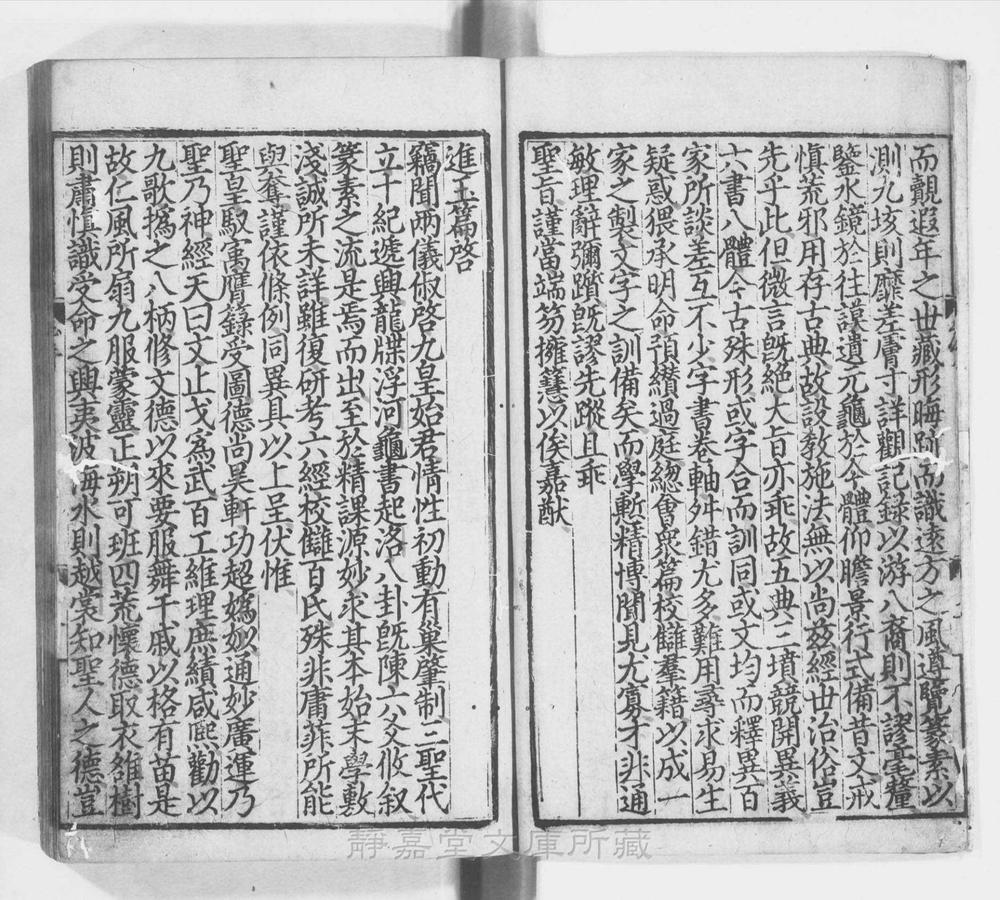 而覿遐年之世藏形晦跡而識遠方之風遵覽篆素以
測九垓則靡差膚寸詳觀記録以游八裔則不謬毫釐
鑒水鏡於往謨遺元龜於今體仰瞻景行式備昔文戒
慎荒邪用存古典故設教施法無以尚兹經世治俗豈
先乎此但微言旣絶大旨亦乖故五典三墳競開異義
六書八體今古殊形或字合而訓同或文均而釋異百
家所談差互不少字書卷軸舛錯尤多難用尋求易生
疑惑猥承明命預纘過庭緫會衆篇校讎羣籍以成一
家之製文字之訓備矣而學慙精博聞見尤寡才非通
敏理辭彌躓旣謬先蹤且乖
聖旨謹當端笏擁篲以俟嘉猷
進玉篇啓
竊聞兩儀俶啓九皇始君情性初動有巢肇制三聖代
立十紀遞興龍牒浮河龜書起洛八卦旣陳六爻攸叙
篆素之流是焉而出至於精課源妙求其本始末學敷
淺誠所未詳雖復研考六經校讎百氏殊非庸菲所能
與奪謹依條例同異具以上呈伏惟
聖皇馭㝢膺籙受圖德尚昊軒功超嬀姒通妙廣運乃
聖乃神經天曰文止戈爲武百工維理庶績咸熈勸以
九歌撝之八柄修文德以來要服舞干戚以格有苗是
故仁風所扇九服蒙靈正朔可班四荒懷德取衣雒樹
則肅慎識受命之興夷波海水則越裳知聖人之德豈
靜嘉堂文庫所藏